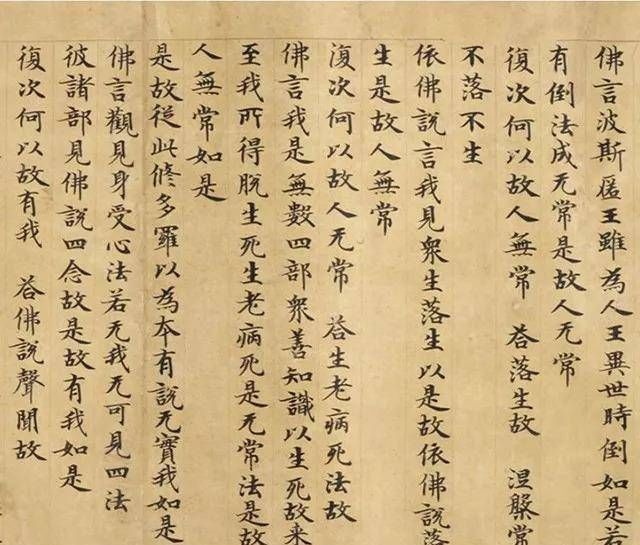 佛言波斯匿王雖為人王異世時倒如是若
有倒法成无常是故人无常
復次何以故人無常 荅落生故 涅槃常
不落不生
依佛說言我見衆生落生以是故依佛說落
生是故人無常
復次何以故人无常 荅生老病死法故
佛言我是無數四部衆善知識以生死故来
至我所得脫生死生老病死是无常法是故
人無常如是
是故從此修多羅以為本有說无實我如是
佛言觀見身受心法若无我无可見四法
彼諸部見佛說四念故是故有我如是
復次何以故有我 荅佛說聲聞故